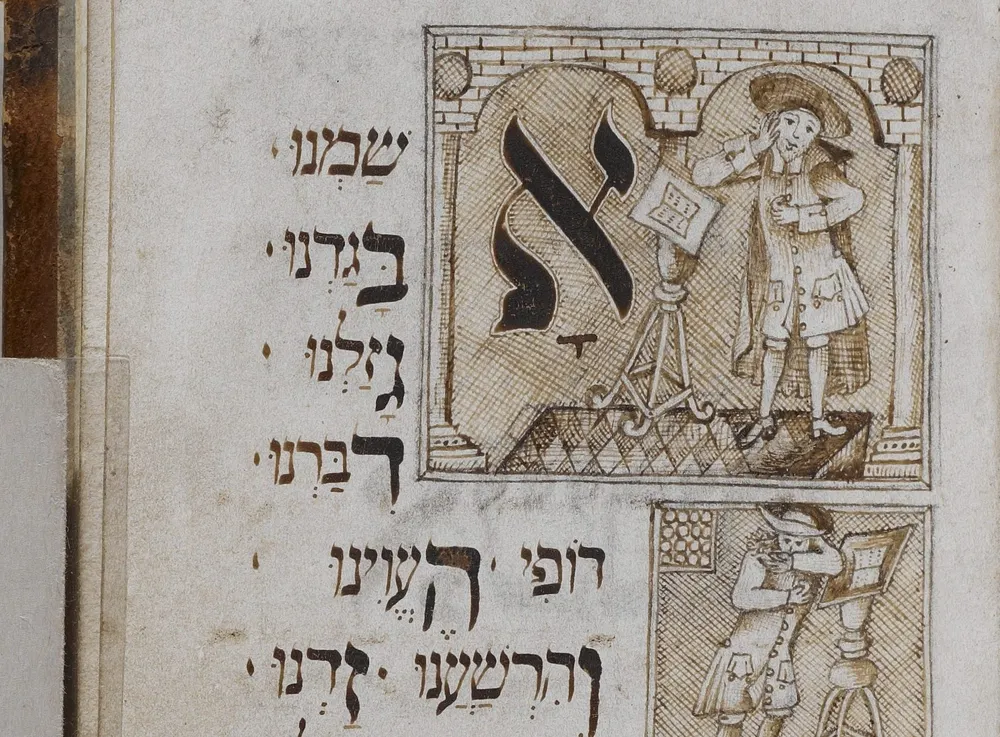 אָשַׁמְנוּ ·
בָּגַדְנוּ ·
גָּזַלְנוּ ·
דִבַּרְנוּ ·
דוֹפִי · הֶעֱוִינוּ ·
וְהִרְשַׁעְנוּ · זַדְנוּ ·